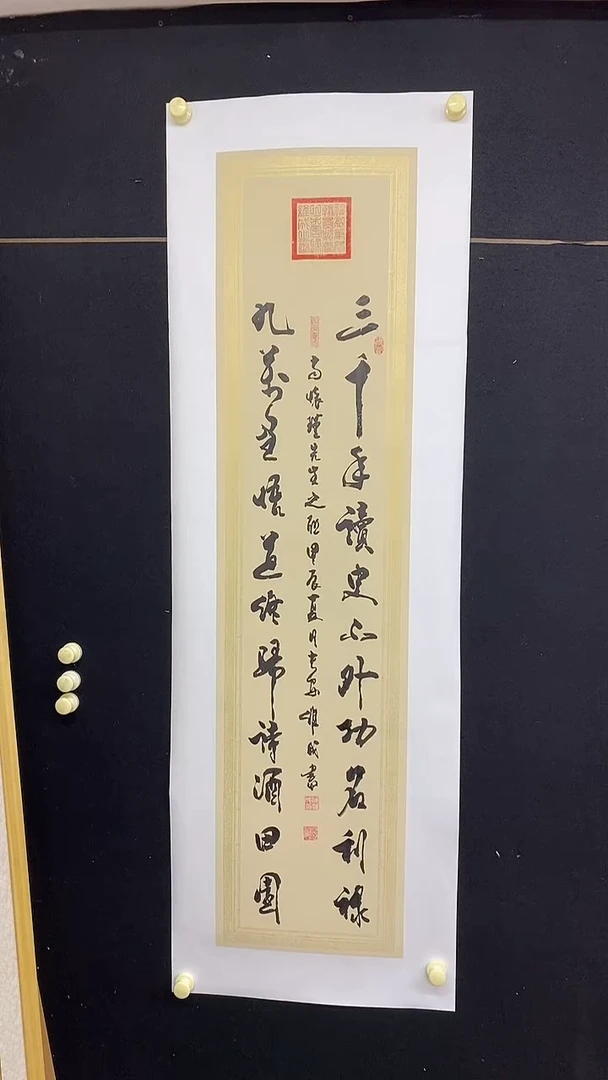 三千年讀史不外功名利祿
九萬里悟道終歸詩酒田園
南懷瑾先生之聯甲辰夏月長安雄成書